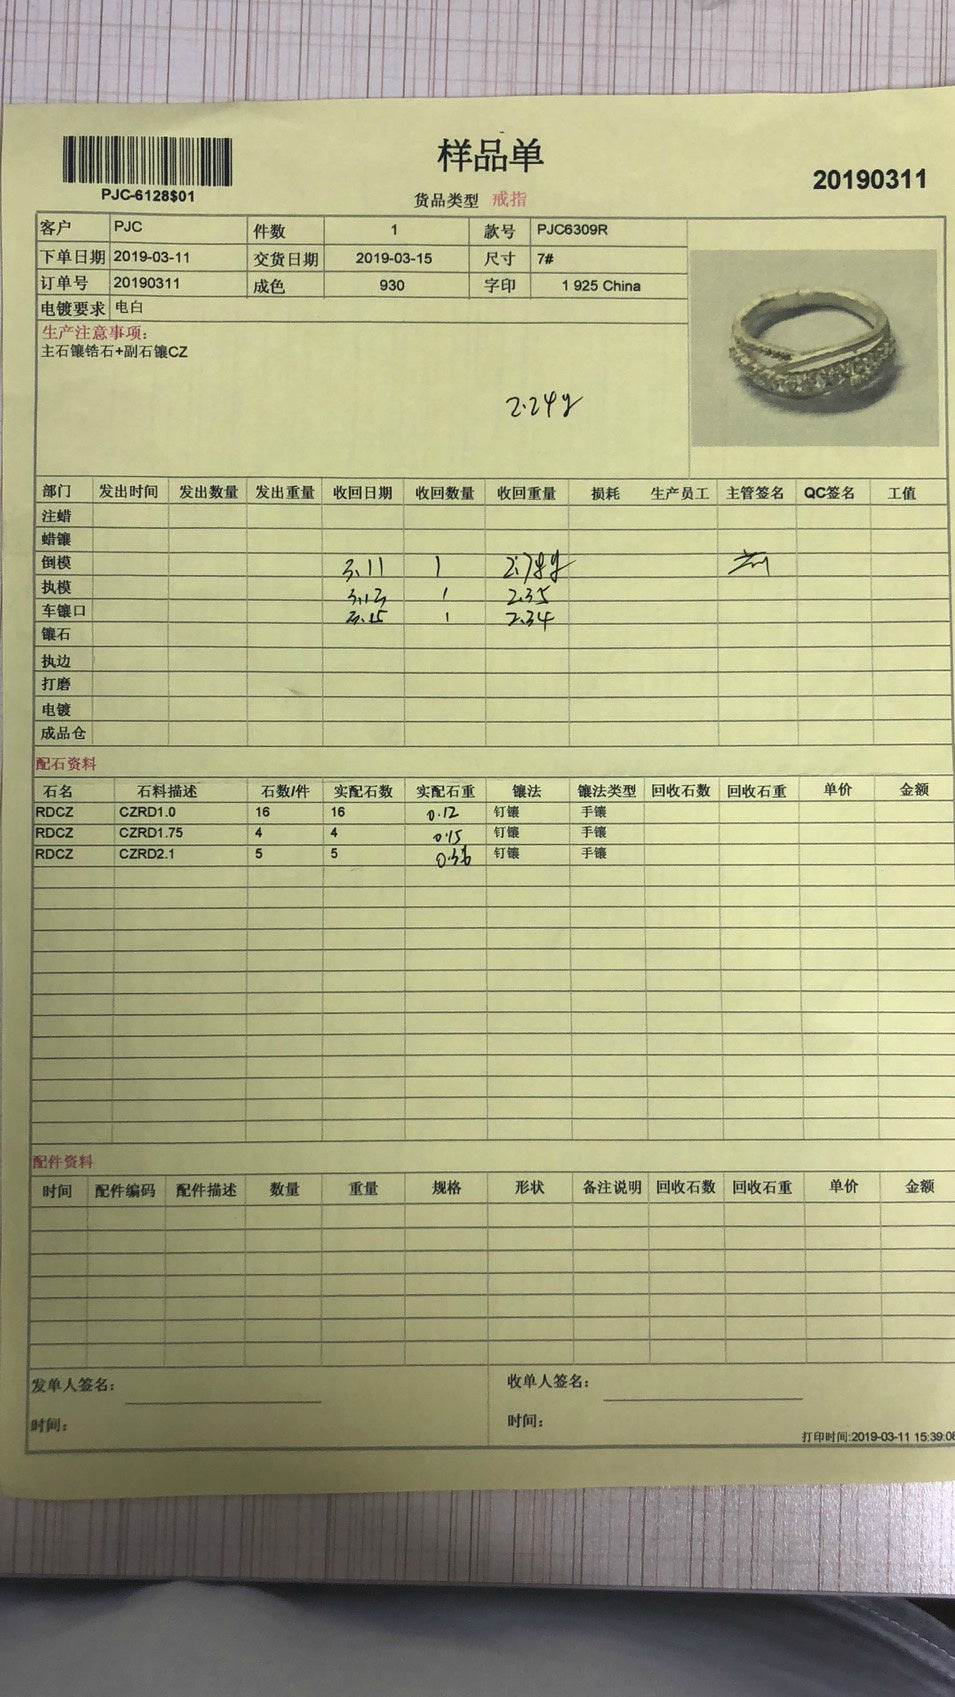 样品单
PJC-6128$01
货品类型 戒指
20190311
客户 PJC 件数 1 款号 PJC6309R
下单日期 2019-03-11 交货日期 2019-03-15 尺寸 7#
订单号 20190311 成色 930 字印 1 925 China
电镀要求 电白
生产注意事项:
主石镶锆石+副石镶CZ
2.24g
部门 发出时间 发出数量 发出重量 收回日期 收回数量 收回重量 损耗 生产员工 主管签名 QC签名 工值
注蜡
蜡镶
倒模 3.11 1
执模 3.13 1 2.35
车镶口 3.15 1 2.34
镶石
执边
打磨
电镀
成品仓
配石资料
石名 石料描述 石数/件 实配石数 实配石重 镶法 镶法类型 回收石数 回收石重 单价 金额
RDCZ CZRD1.0 16 16 0.12 钉镶 手镶
RDCZ CZRD1.75 4 4 0.15 钉镶 手镶
RDCZ CZRD2.1 5 5 钉镶 手镶
配件资料
时间 配件编码 配件描述 数量 重量 规格 形状 备注说明 回收石数 回收石重 单价 金额
发单人签名: 收单人签名:
时间: 时间:
打印时间:2019-03-11 15:39:08